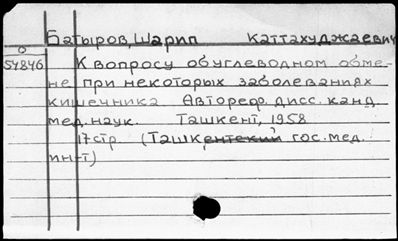 Батыров, Шарип Каттахуджаевич
0
54846 К вопросу об углеводном обме-
не при некоторых заболеваниях
кишечника Автореф. дисс. канд.
мед. наук. Ташкент, 1958
17 стр. (Ташкентский гос. мед.
ин-т)